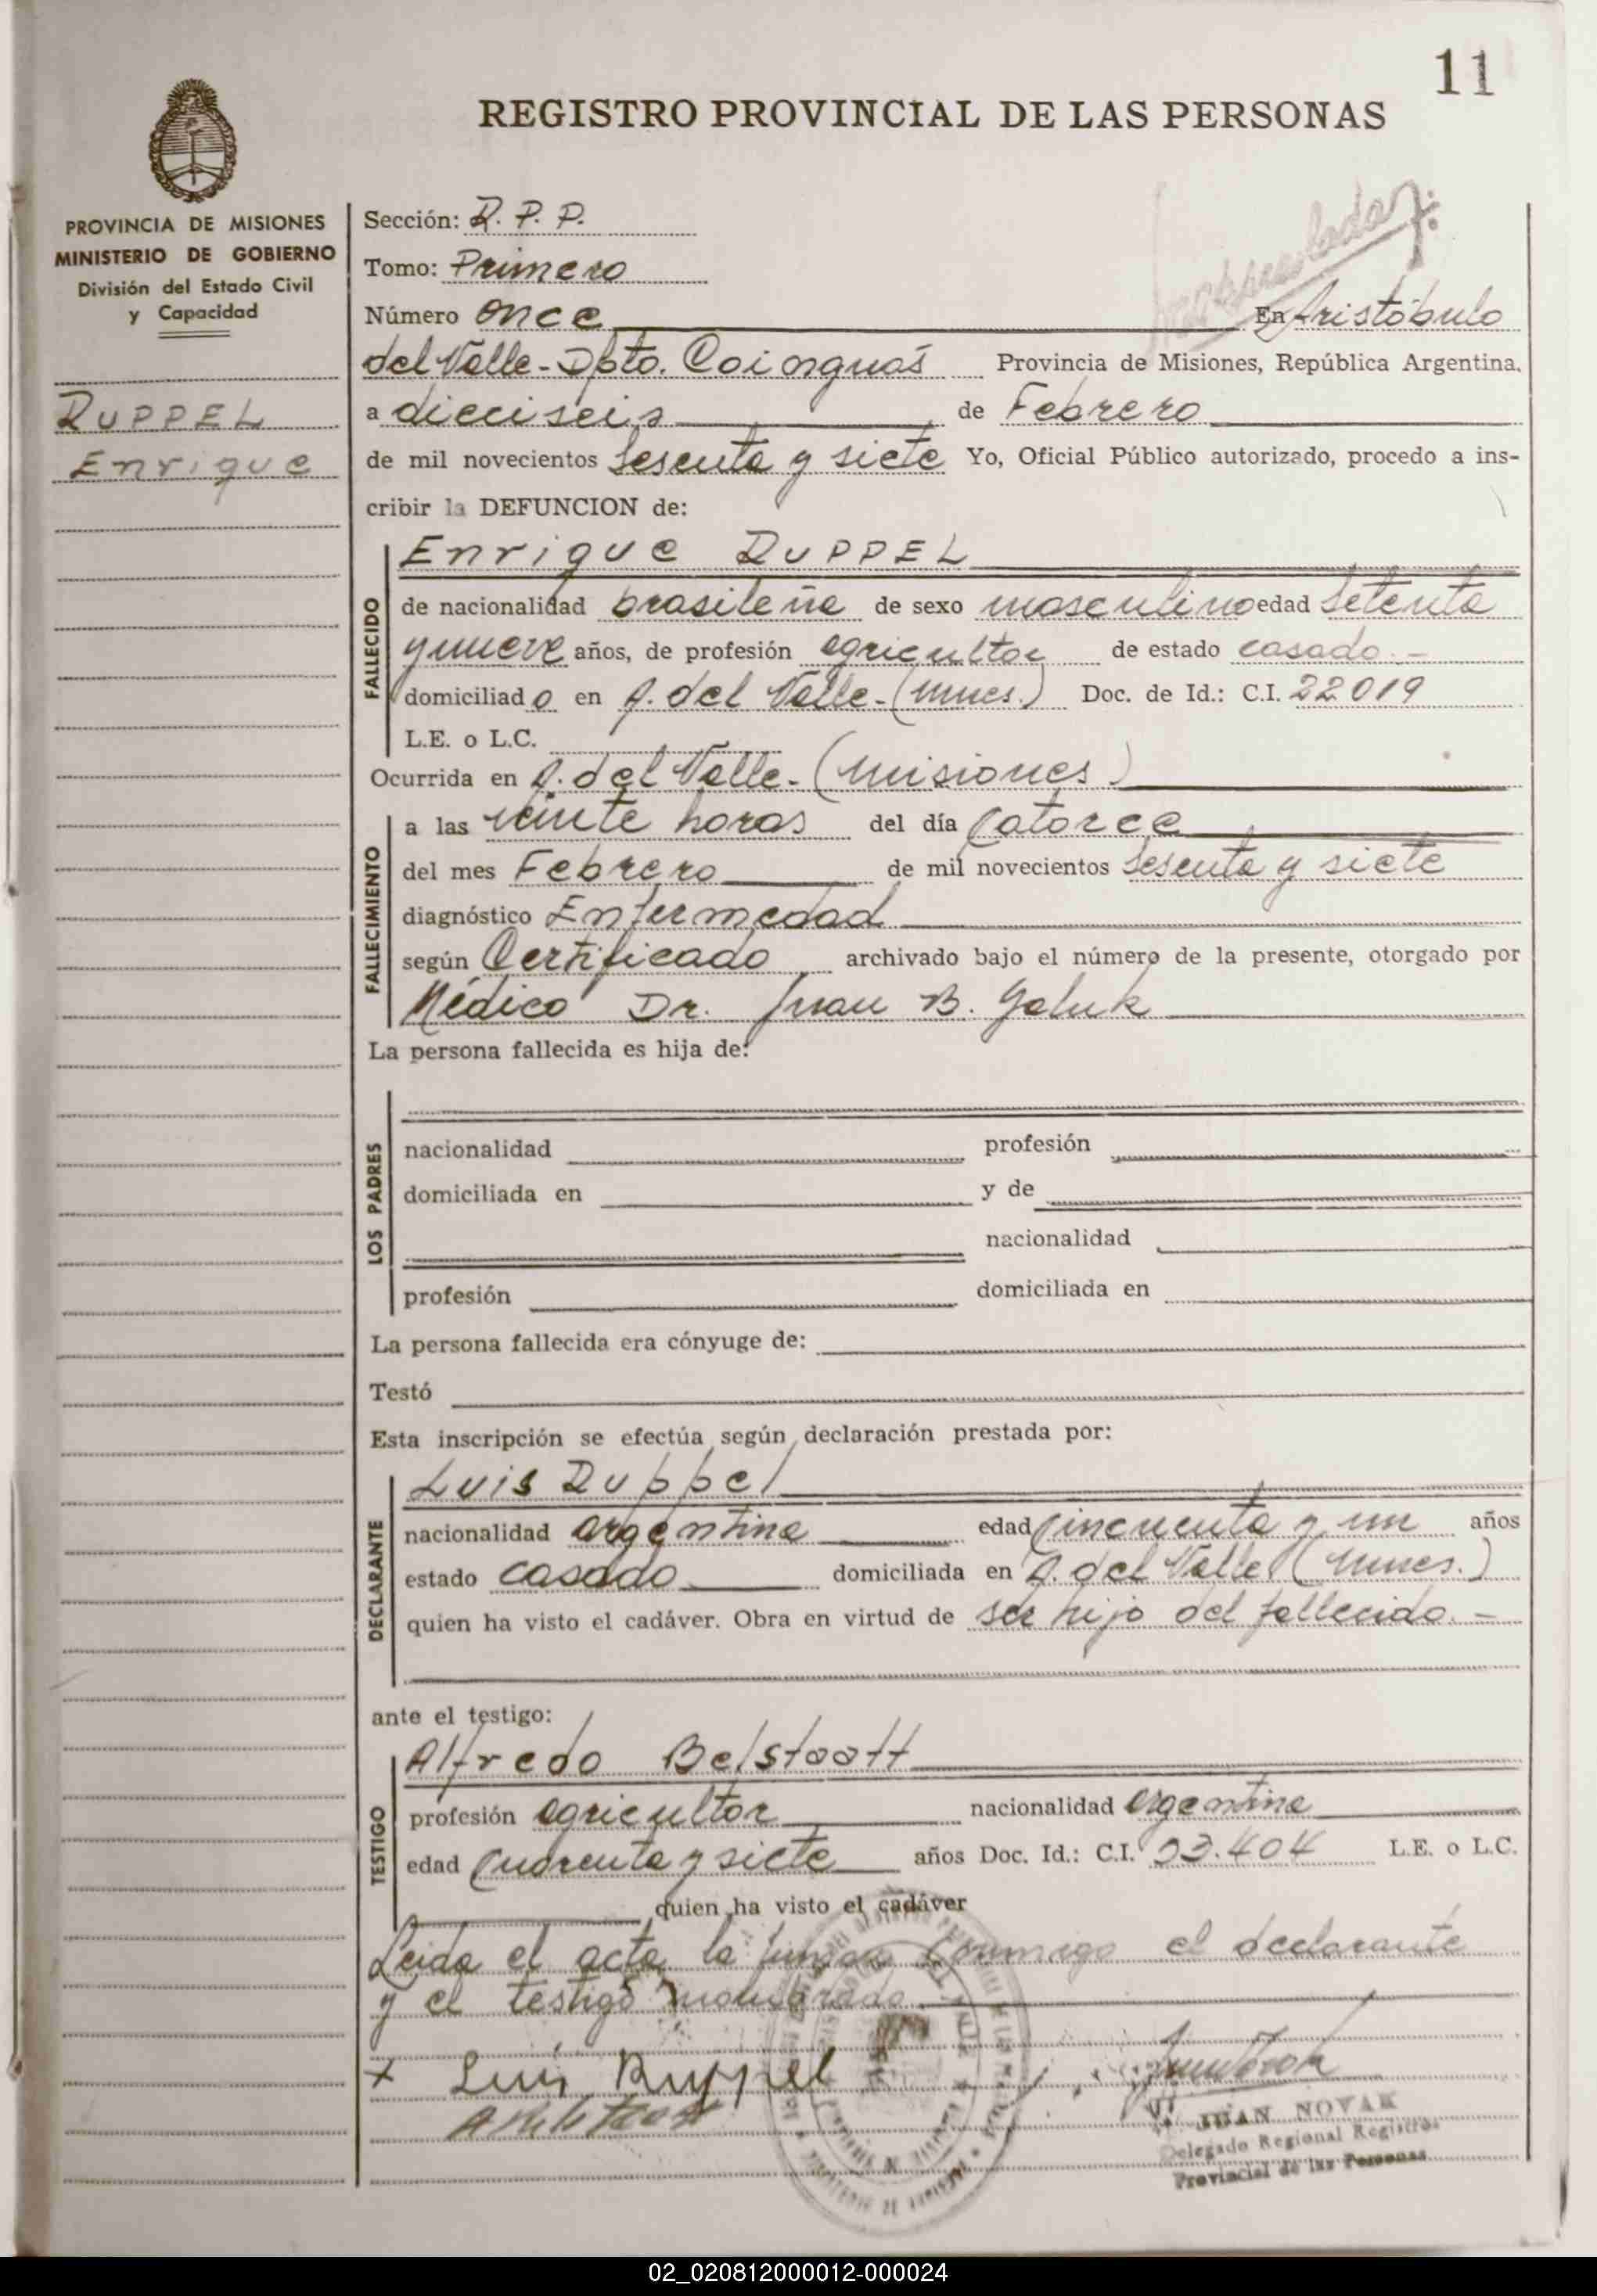 11
REGISTRO PROVINCIAL DE LAS PERSONAS
PROVINCIA DE MISIONES
MINISTERIO DE GOBIERNO
División del Estado Civil
y Capacidad
RUPPEL
Enrique
Sección: R. P. P.
Tomo: Primero
Número once En Aristóbulo
del Valle - Dpto. Cainguás Provincia de Misiones, República Argentina,
a dieciseis de Febrero
de mil novecientos Sesenta y siete Yo, Oficial Público autorizado, procedo a ins-
cribir la DEFUNCION de:
FALLECIDO
Enrique RUPPEL
de nacionalidad brasileña de sexo masculino edad Setenta
y nueve años, de profesión agricultor de estado casado.-
domiciliado en A. del Valle - (Mnes.) Doc. de Id.: C.I. 22019
L.E. o L.C.
Ocurrida en A. del Valle - (Misiones)
FALLECIMIENTO
a las veinte horas del día Catorce
del mes Febrero de mil novecientos Sesenta y siete
diagnóstico Enfermedad
según Certificado archivado bajo el número de la presente, otorgado por
Médico Dr. Juan B. Galuk
La persona fallecida es hija de:
LOS PADRES
nacionalidad profesión
domiciliada en y de
nacionalidad
profesión domiciliada en
La persona fallecida era cónyuge de:
Testó
Esta inscripción se efectúa según declaración prestada por:
DECLARANTE
Luis Ruppel
nacionalidad argentina edad Cincuenta y un años
estado casado domiciliada en A. del Valle (Mnes.)
quien ha visto el cadáver. Obra en virtud de ser hijo del fallecido.-
ante el testigo:
TESTIGO
Alfredo Belstaatt
profesión agricultor nacionalidad argentina
edad Cuarenta y siete años Doc. Id.: C.I. 93.404 L.E. o L.C.
quien ha visto el cadáver
Leida el acta la firman conmigo el declarante
y el testigo nombrado
x Luis Ruppel
JUAN NOVAK
Delegado Regional Registro
Provincial de las Personas
02_020812000012-000024